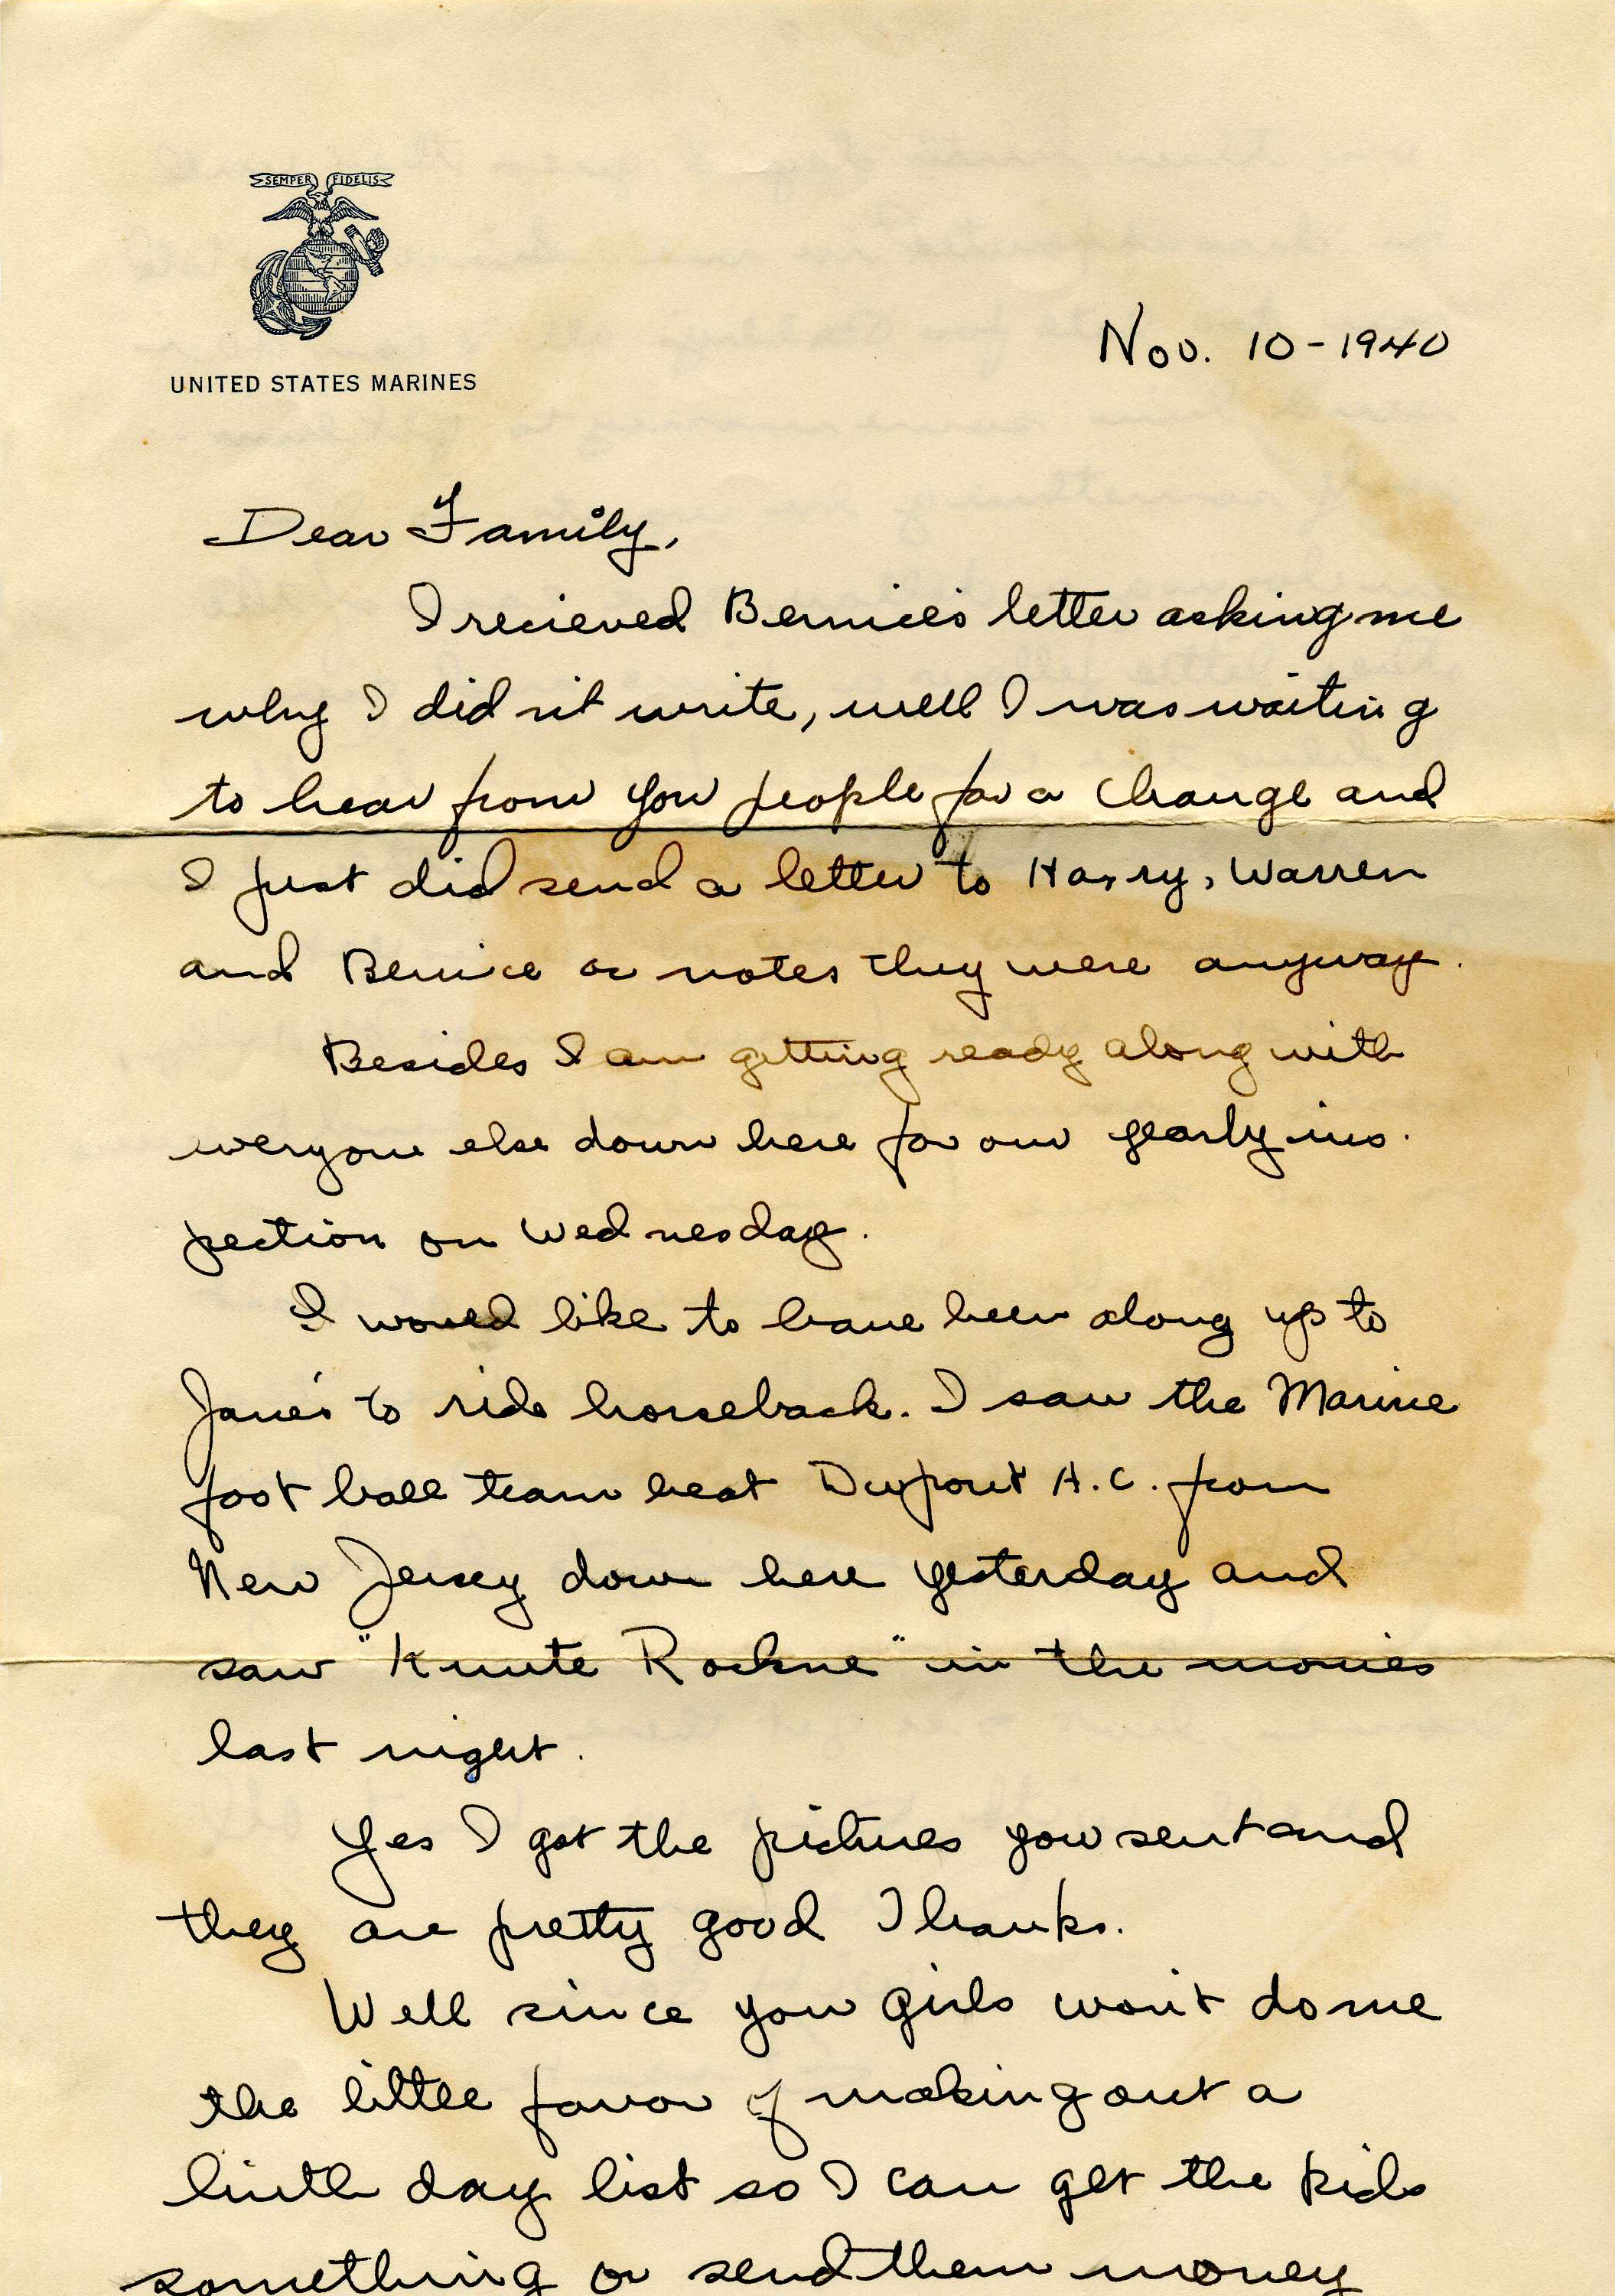 SEMPER FIDELIS
UNITED STATES MARINES
Nov. 10-1940
Dear Family,
I recieved Bernice's letter asking me
why I did n't write, well I was waiting
to hear from you people for a change and
I just did send a letter to Harry, Warren
and Bernice or notes they were anyway.
Besides I am getting ready along with
everyone else down here for our yearly ins-
pection on Wednesday.
I would like to have been along up to
Jane's to ride horseback. I saw the Marine
foot ball team beat Dupont A.C. from
New Jersey down here yesterday and
saw "Knute Rockne" in the movies
last night.
Yes I got the pictures you sent and
they are pretty good Thanks.
Well since you girls won't do me
the little favor of making out a
birth day list so I can get the kids
something or send them money